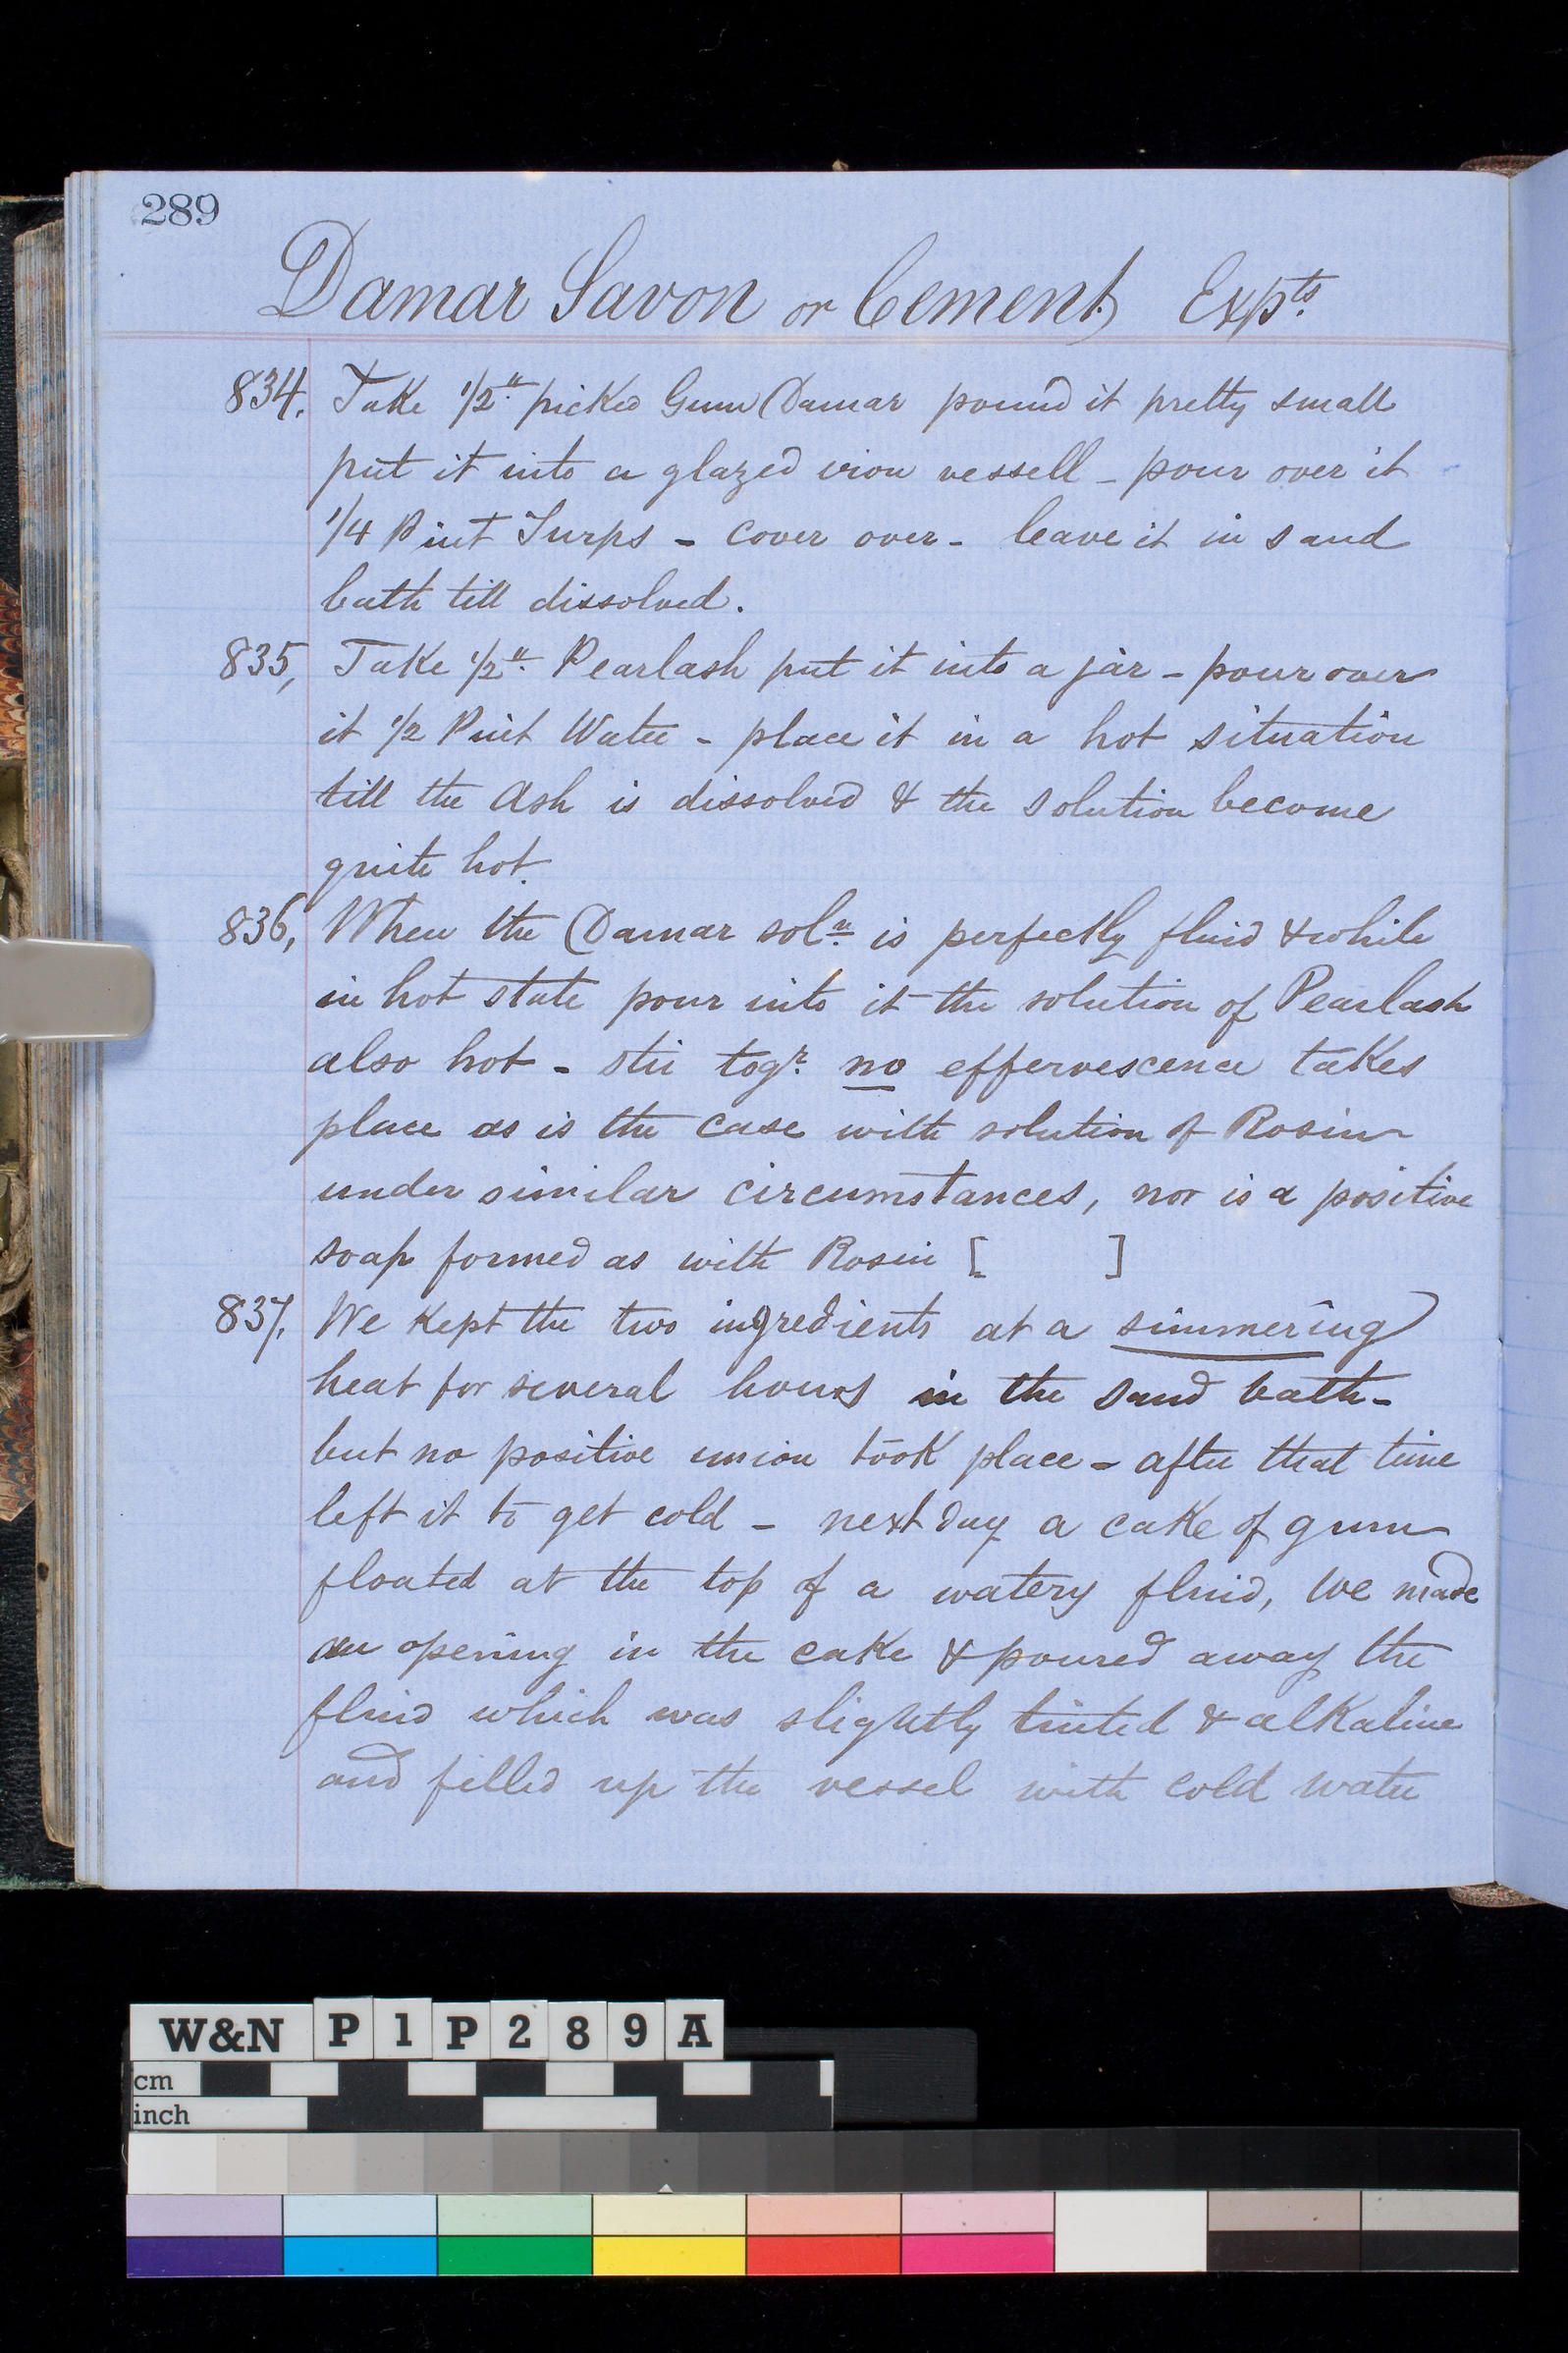 289
Damar Savon or Cement Expts.
834. Take 1/2" picked Gum Damar pound it pretty small
put it into a glazed iron vessell - pour over it
1/4 Pint Turps - cover over - leave it in sand
bath till dissolved.
835, Take 1/2" Pearlash put it into a jar - pour over
it 1/2 Pint Water - place it in a hot situation
till the Ash is dissolved & the solution become
quite hot.
836, When the Damar soln is perfectly fluid & while
in hot state pour into it the solution of Pearlash
also hot - stir togr. no effervescence takes
place as is the case with solution of Rosin
under similar circumstances, nor is a positive
soap formed as with Rosin [ ]
837. We kept the two ingredients at a simmering
heat for several hours in the sand bath -
but no positive union took place - after that time
left it to get cold - next day a cake of gum
floated at the top of a watery fluid, we made
an opening in the cake & poured away the
fluid which was slightly tinted & alkaline
and filled up the vessel with cold water
W&N P1P289A
cm
inch